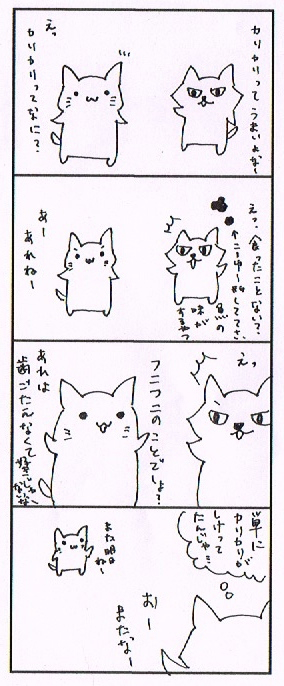 カリカリってうまいよな〜
えっ
カリカリってなに？
えっ、食ったことない？
こーゆー形しててさ
魚の
味が
するやつ
あー
あれねー
えっ
フニフニのことでしょ？
あれは
歯ごたえなくて好きじゃ
ないな
単に
カリカリが
しけって
たんじゃ…
おー
またなー
また明日
ねー